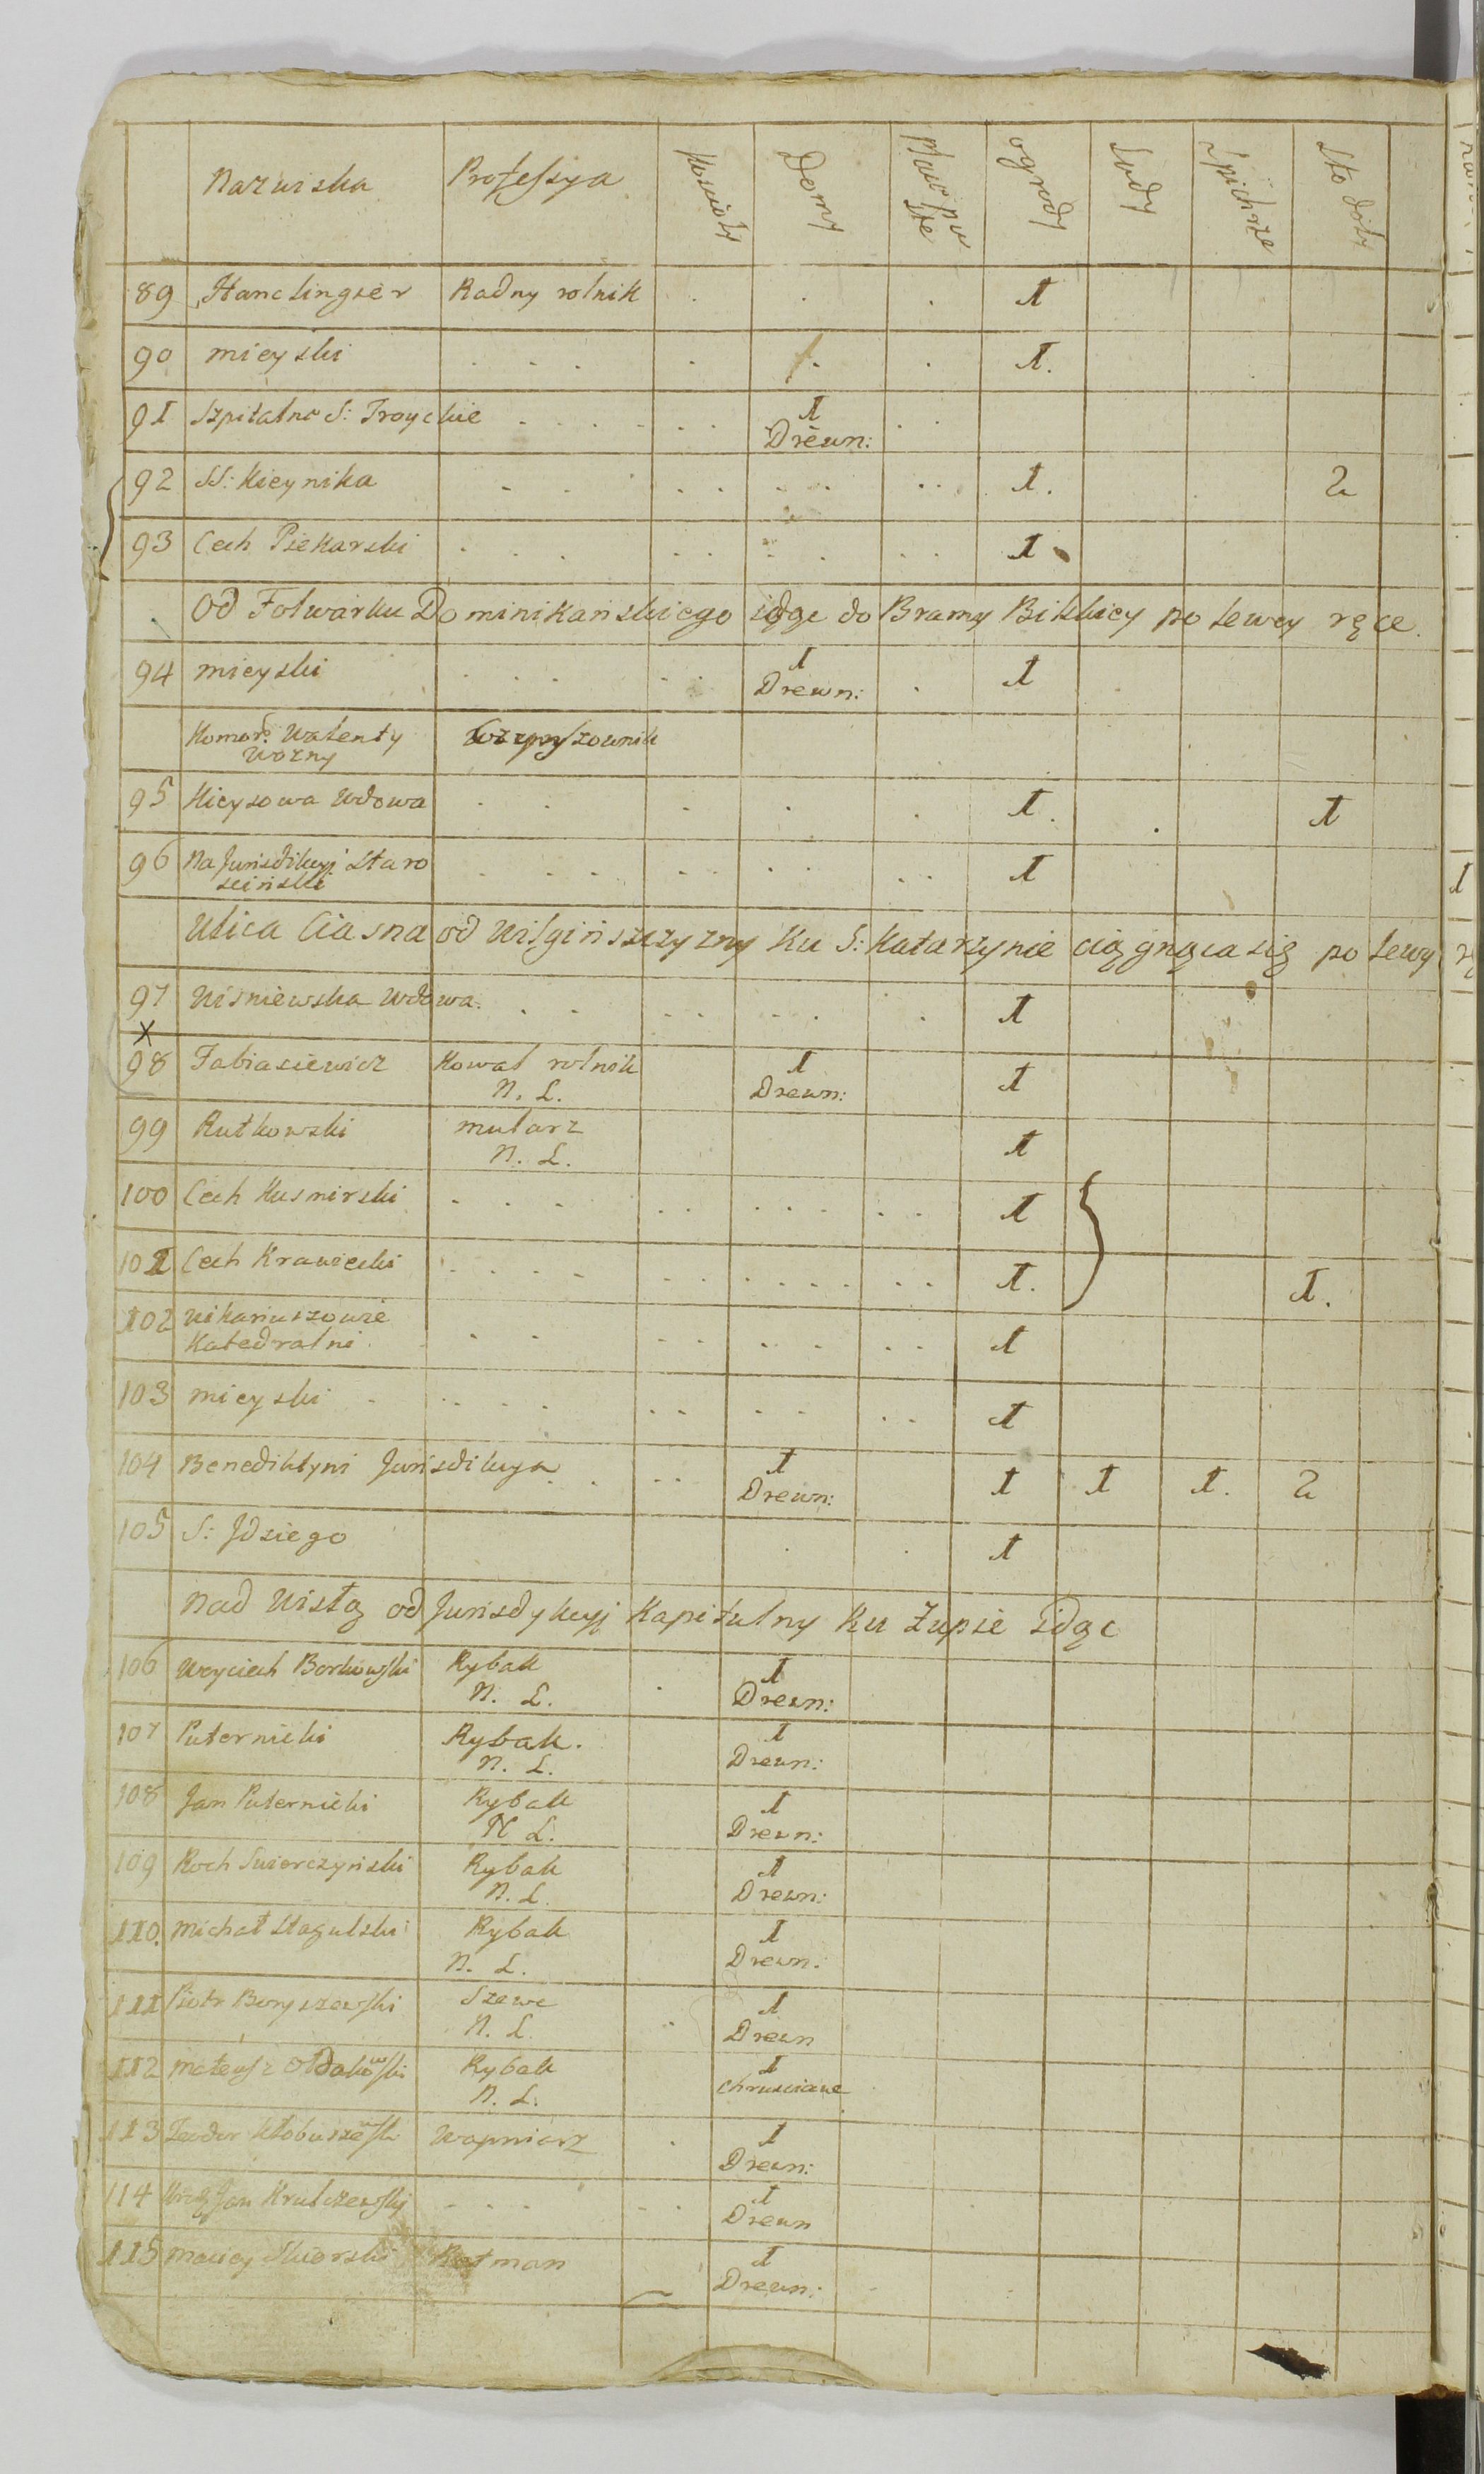 Nazwiska Professya Kościoły Domy Place puste ogrody Sady Spichrze Stodoły
89 Hanclingier Radny rolnik 1
90 mieyski 1.
91 Szpitalne S: Troyckie 1 Drewn:
92 SS: Kieynika 1. 2
93 Cech Piekarski 1
Od Folwarku Dominikańskiego idąc do Bramy Bilskiey po lewey ręce.
94 mieyski 1 Drewn: 1
Komor: Walenty
Wozny
95 Kieysowa Wdowa 1. 1
96 Na Jurisdikcyj Staro
scińskie 1
Ulica Ciasna od Wilgińszczyzny ku S: Katarzynie ciągnąca się po lewy
97 Wisniewska Wdowa 1
x
98 Fabiasiewicz Kowal rolnik N. L. 1 Drewn: 1
99 Rutkowski mularz N. L. 1
100 Cech Kusnirski 1
101 Cech Krawiecki 1. 1.
102 Wikariuszowie
Katedralni 1
103 mieyski 1
104 Benediktyni Jurisdikcya 1 Drewn: 1 1 1. 2
105 S: Jdziego 1
Nad Wisłą od Jurisdykcyj Kapitulny ku Żupie idąc
106 Woyciech Borkowski Rybak N. L. 1 Drewn:
107 Puternicki Rybak. N. L. 1 Drewn:
108 Jan Puternicki Rybak N L. 1 Drewn:
109 Roch Swierczyński Rybak N. L. 1 Drewn:
110. Michał Stagulski Rybak N. L. 1 Drewn:
111 Piotr Boryszewski Szewc N. L. 1 Drewn
112 Mateusz Ołdakowski Rybak N. L. 1 chruściane
113 Teodor Wapniarz 1 Drewn:
114 Jan Krulczewski 1 Drewn
115 Maciey Retman 1 Drewn: